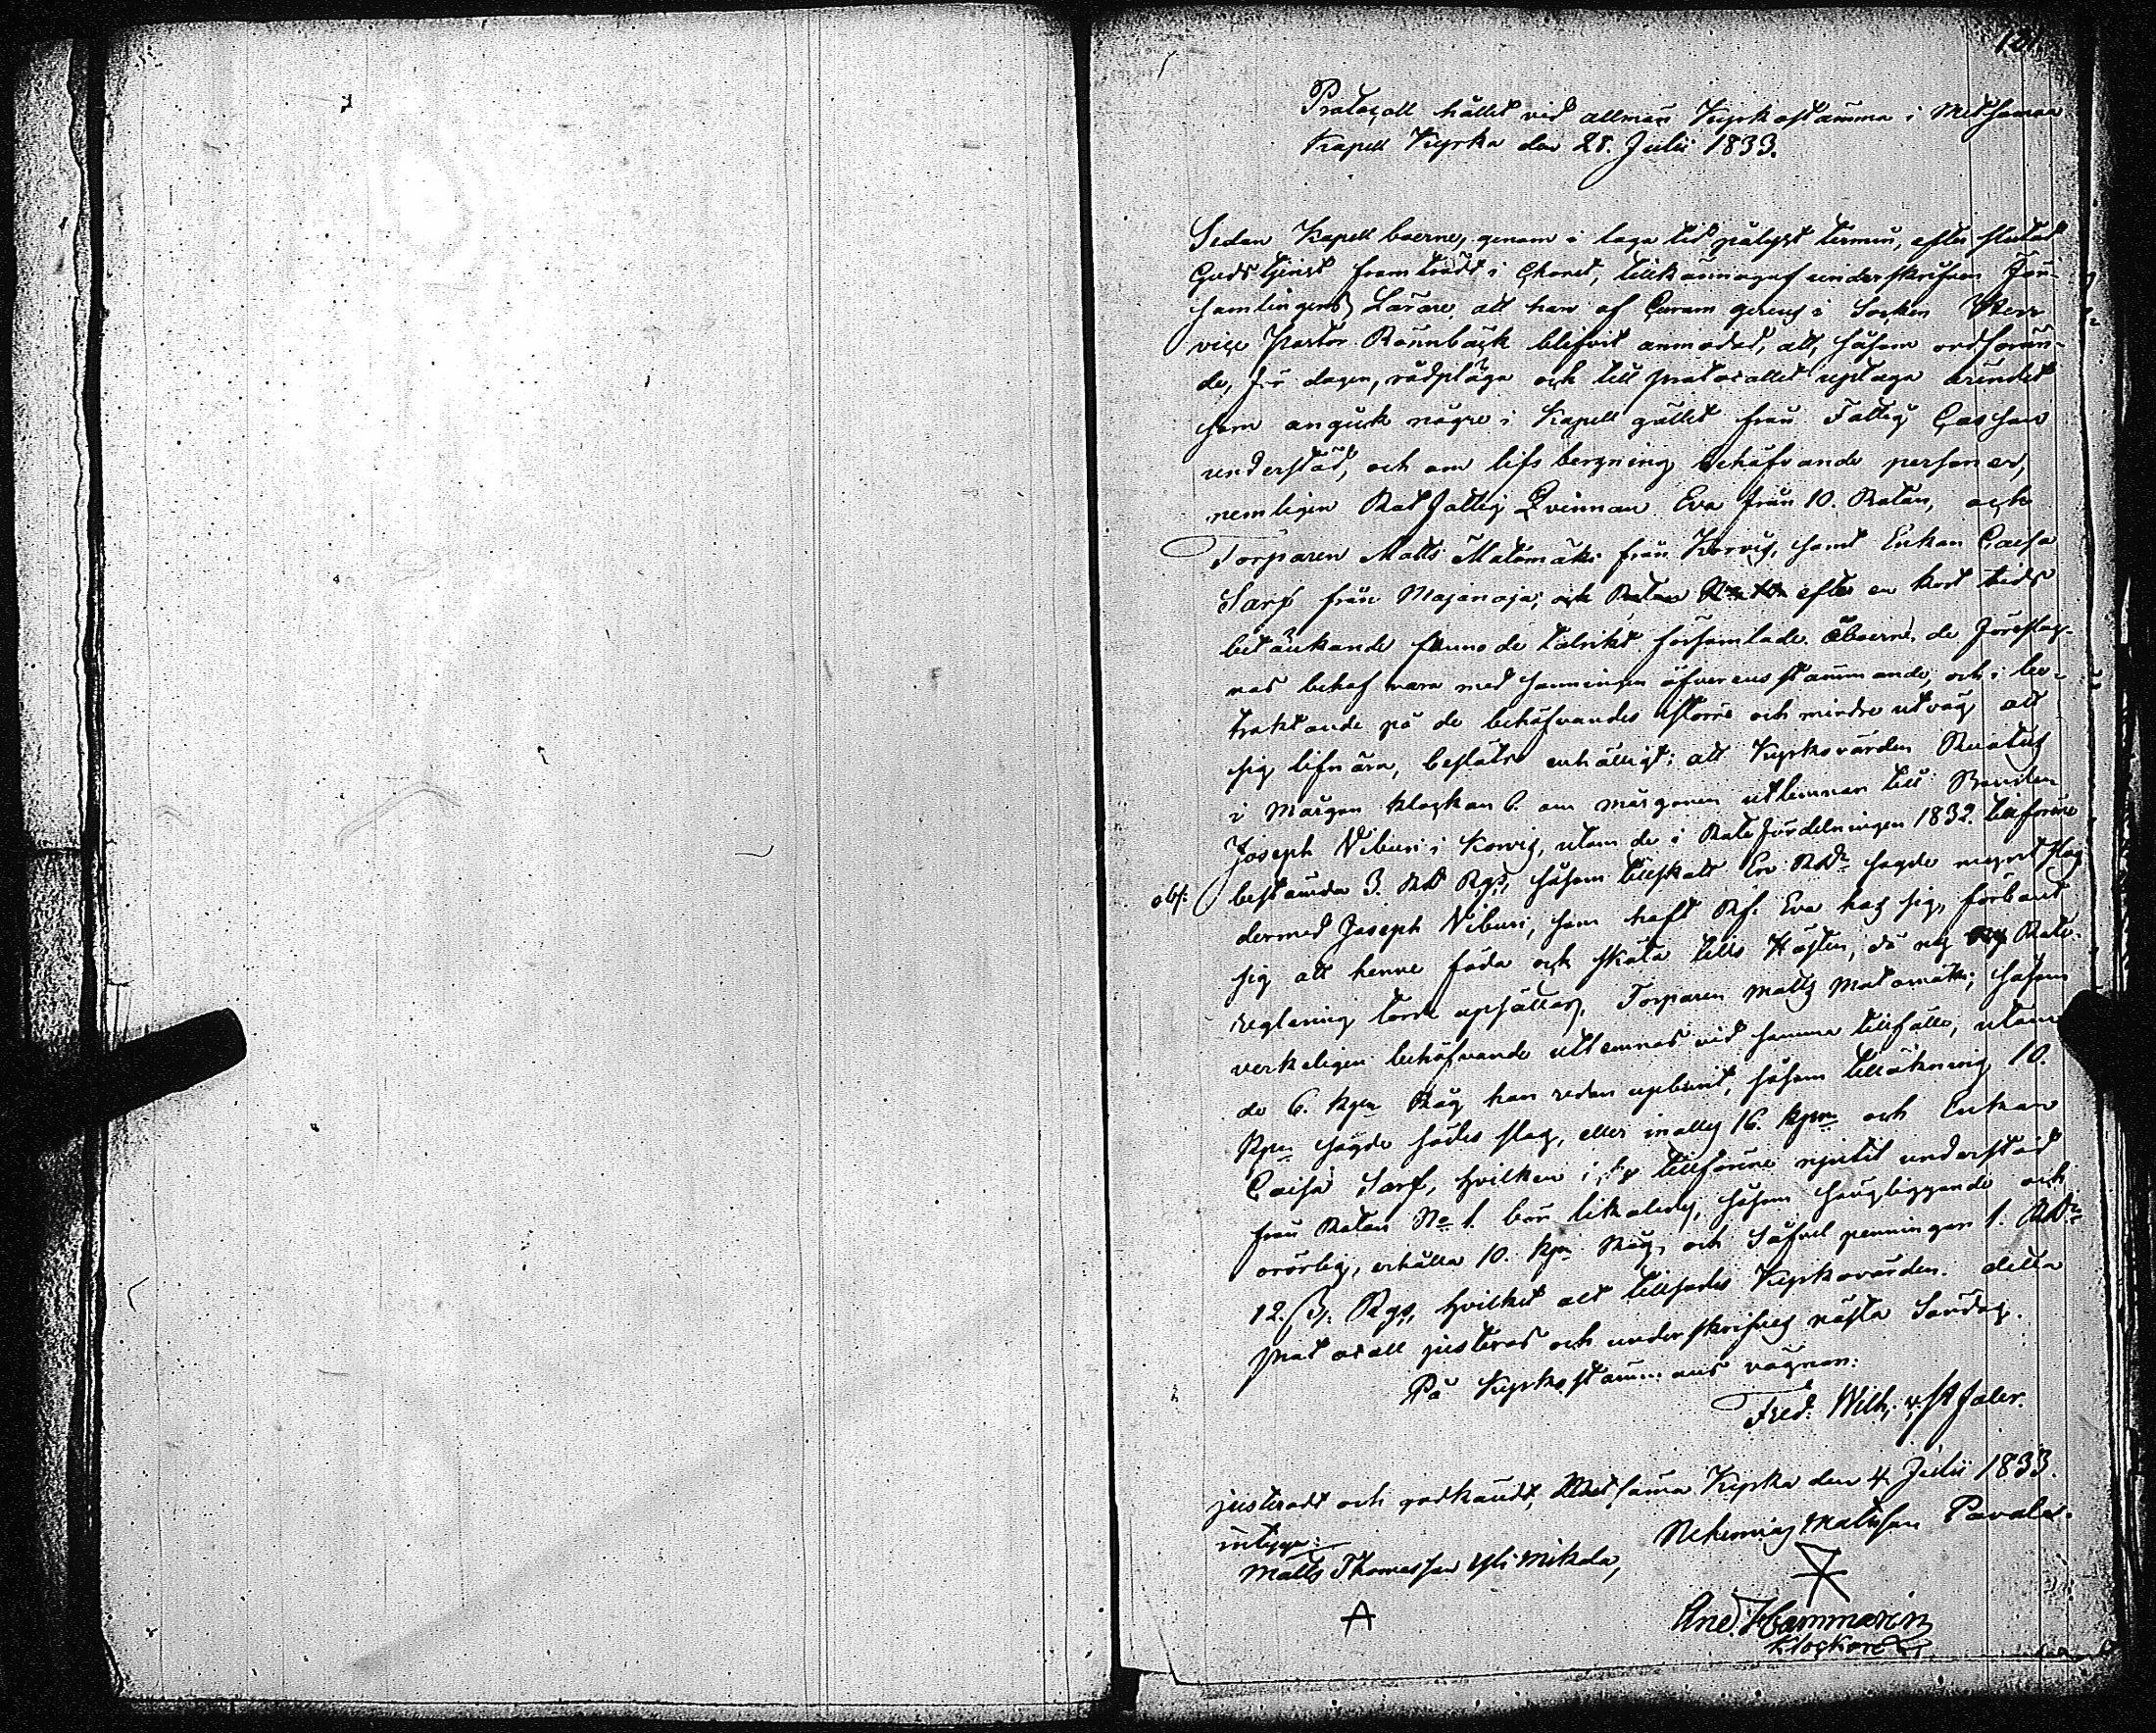 121.
Protocoll hållet vid allmän Kyrkostämma i Metsämaa
Kapell Kyrka den 28. Julii 1833.
Sedan Kapellboerne, genom i laga tid pålyst termin, efter slutad
Gudstjenst framträdt i Choret, tillkännagaf underskrifven För-
samlingens Lärare, att han af Curam gerens i Socken Herr
vice Pastor Rönnbäck blifvit anmodad, att, såsom ordföran-
de, för dagen, rådpläga och till protocollet uptaga ärendet
som angick några i Kapell gället från Fattig Cassan
understöd, och om lifsbergning behöfvande personer,
nemligen Rotfattig Qvinnan Eva från 10. Rotan, och
Torparen Matts Matomäki från Korvis, samt Enkan Caisa
Sarf från Majanoja; och efter en kort tids
betänkande funno de talrikt församlade Åboerne, de föreslag-
nas behof vara med sanningen öfverensstämmande, och i be-
traktande på de behöfvandes större och mindre utväg att
sig lifnära, beslöts enhälligt; att Kyrkovärden
i morgon klockan 6. om morgonen utlemnar till Bonden
Joseph Viburi i Korvis, utom de i Rotefördelningen 1832. tillförne
obs: bestämda 3. Rd Rgs, såsom tillskott En Rd:r
dermed Joseph Viburi, som haft Rf. Eva hos sig, förband
sig att henne föda och sköta till Hösten, då ny Rote-
reglering torde upsättas, Torparen Matts Matomäki, såsom
verkeligen behöfvande utlemnas vid samma tillfälle, utom
de 6. kpr Råg han redan upburit, såsom tillökning 10.
Kpr sagde sädes slag, eller inalles 16. kpr och Enkan
Caisa Sarf, hvilken tillförne njutit understöd
från Rotan No 1. bör likaledes, såsom sängliggande och
orörlig, erhålla 10. kpr Råg, och Söfvel penningar 1. Rd:r
12. s. Rgs, hvilket allt tillsades Kyrkovärden. detta
protocoll justeras och underskrifves nästa Söndag.
På Kyrkostämmans vägnar:
Fred. Wilh.
justeradt och godkändt, Metsämaa Kyrka den 4. Julii 1833.
intyga:
Matts Thomasson Yli Mikola, Nehemias Matsson Pavala.
A
And. Hammarén
Klockare